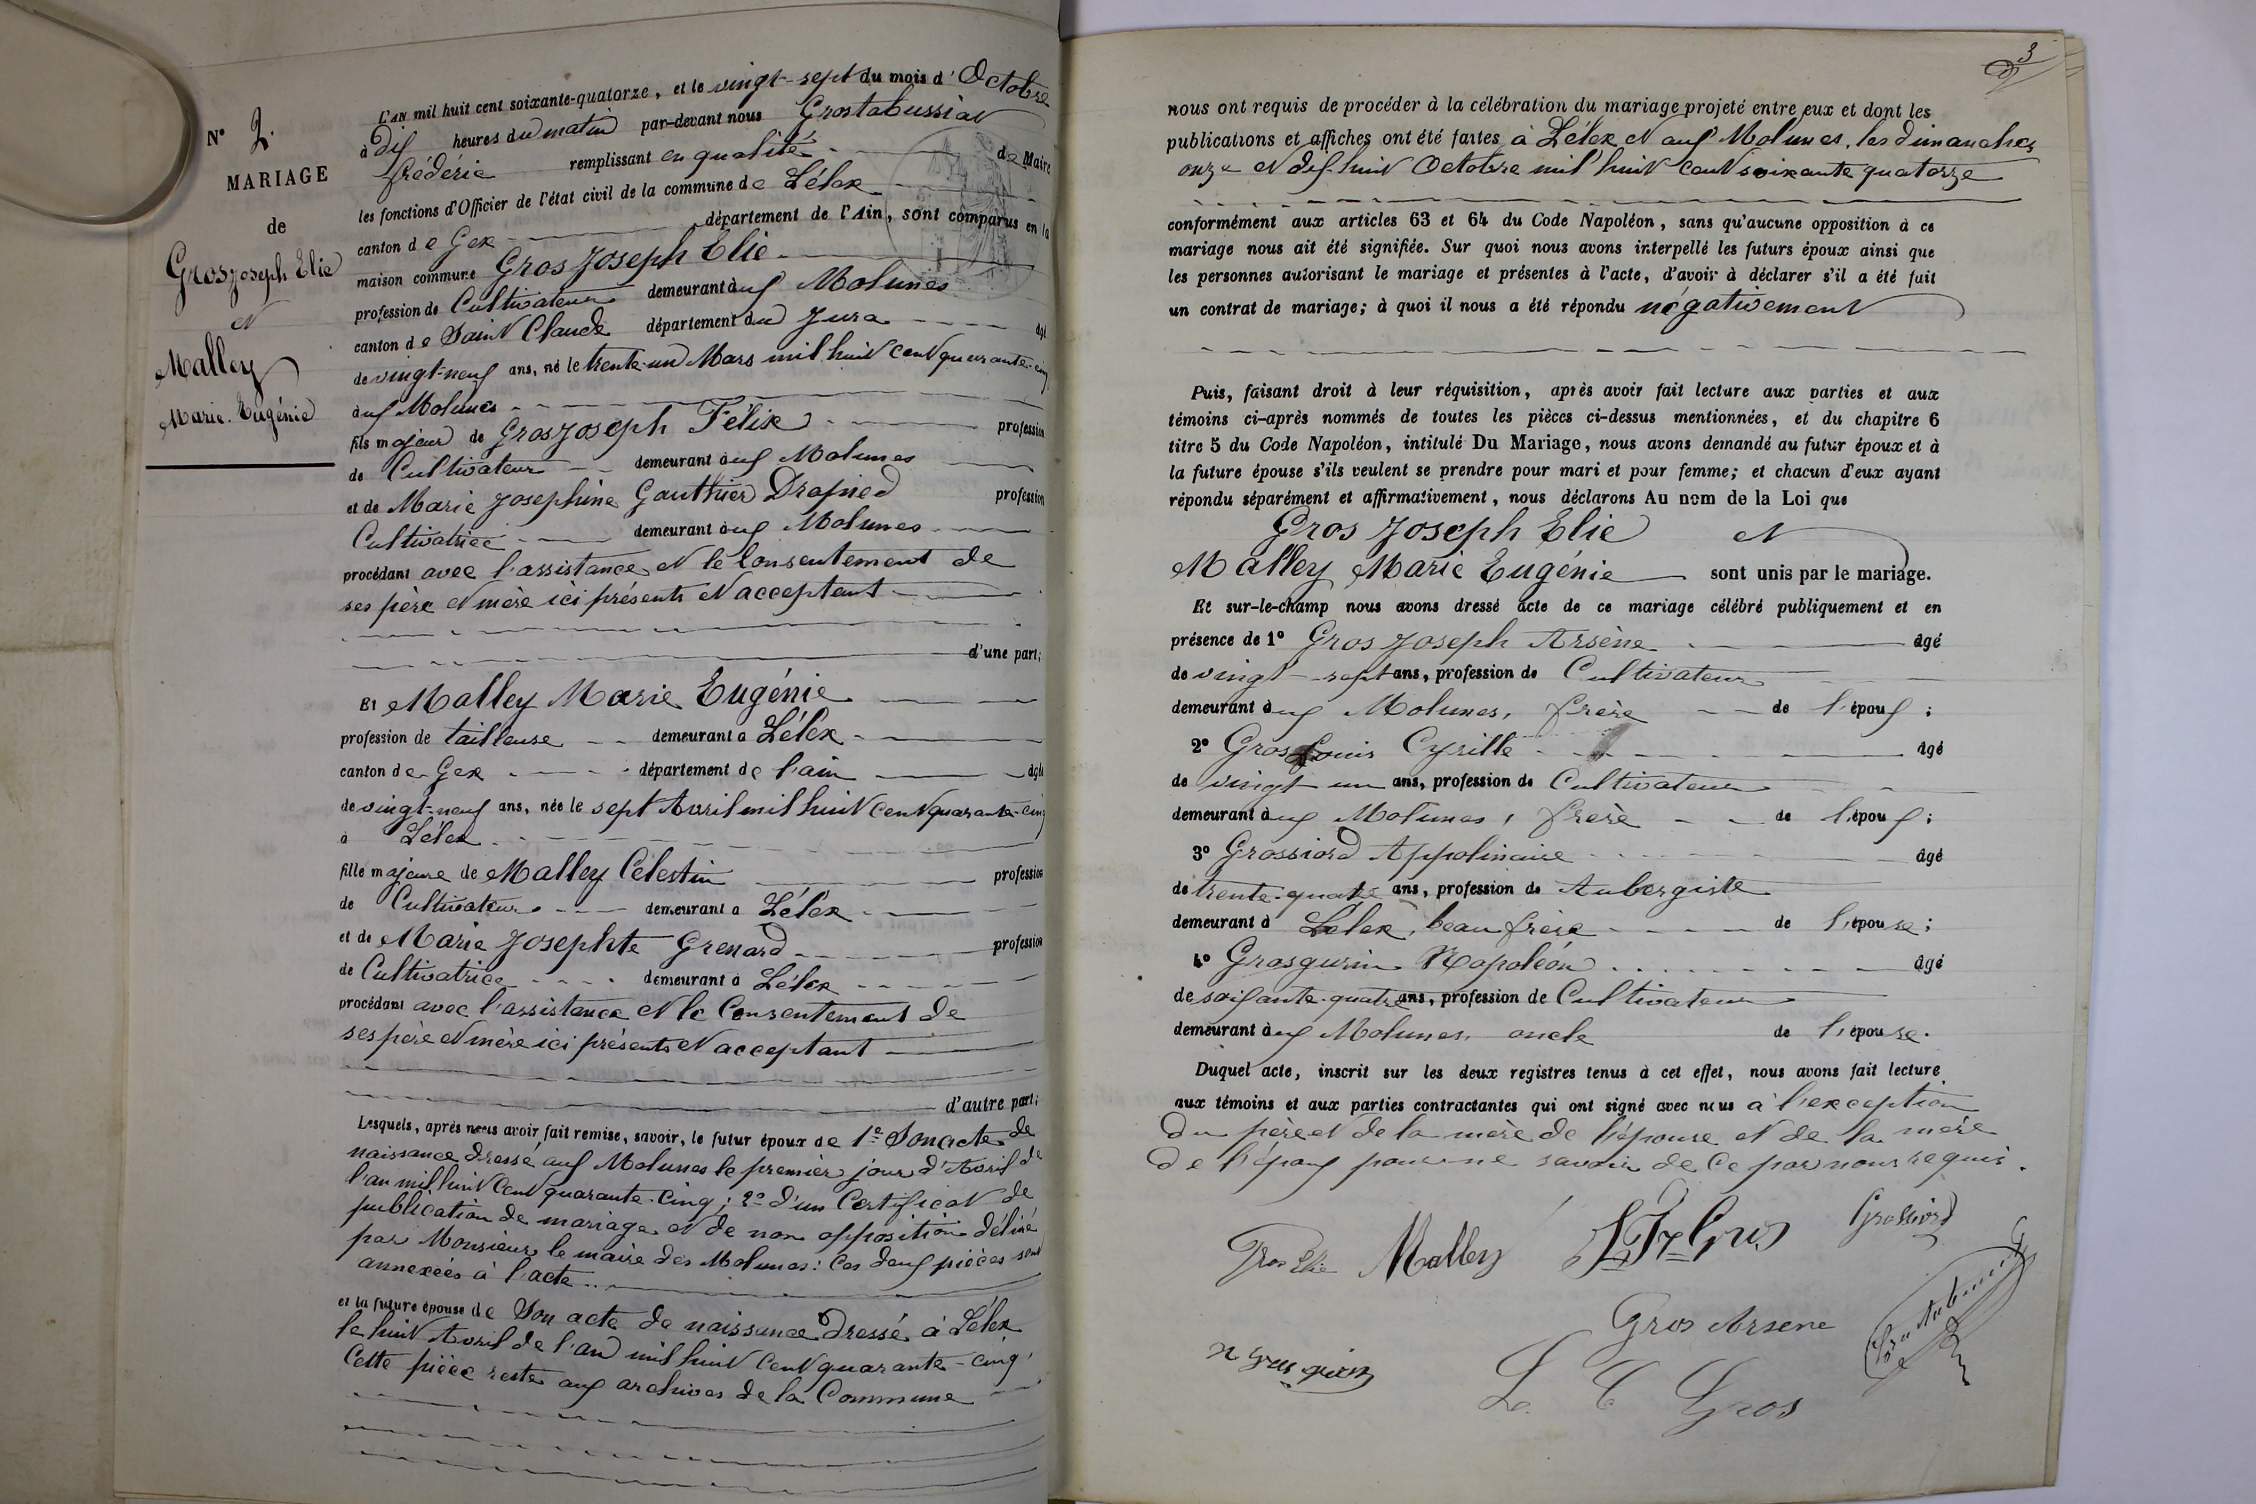 N° 2.
MARIAGE
de
Gros Joseph Elie
et
Malley
Marie Eugénie
L'AN mil huit cent soixante-quatorze, et le vingt-sept du mois d'Octobre
à dix heures du matin par-devant nous Grostabussiat
frédéric remplissant en qualité de Maire
les fonctions d'Officier de l'état civil de la commune de Lélex
canton de Gex département de l'Ain, sont comparus en la
maison commune Gros Joseph Elie
profession de Cultivateur demeurant aux Molunes
canton de Saint Claude département du Jura âgé
de vingt-neuf ans, né le trente-un Mars mil huit cent quarante-cinq
aux Molunes
fils majeur de Gros Joseph Félix profession
de Cultivateur demeurant aux Molunes
et de Marie Josephine Gauthier Drapied profession
Cultivatrice demeurant aux Molunes
procédant avec l'assistance et le Consentement de
ses père et mère ici présents et acceptant
d'une part;
Et Malley Marie Eugénie
profession de tailleuse demeurant à Lélex
canton de Gex département de l'ain âgée
de vingt-neuf ans, née le sept Avril mil huit cent quarante-cinq
à Lélex
fille majeure de Malley Célestin profession
de Cultivateur demeurant à Lélex
et de Marie Josephte Grenard profession
de Cultivatrice demeurant à Lélex
procédant avec l'assistance et le Consentement de
ses père et mère ici présents et acceptant
d'autre part;
Lesquels, après nous avoir fait remise, savoir, le futur époux de 1° Son acte de
naissance dressé aux Molunes le premier jour d'Avril de
l'an mil huit cent quarante-cinq; 2° d'un Certificat de
publication de mariage et de non opposition délivré
par Monsieur le maire des Molunes: Ces deux pièces sont
annexées à l'acte
et la future épouse de Son acte de naissance dressé à Lélex
le huit Avril de l'an mil huit cent quarante-cinq
Cette pièce reste aux archives de la Commune
3
nous ont requis de procéder à la célébration du mariage projeté entre eux et dont les
publications et affiches ont été faites à Lélex et aux Molunes, les dimanches
onze et dix-huit Octobre mil huit cent soixante quatorze
conformément aux articles 63 et 64 du Code Napoléon, sans qu'aucune opposition à ce
mariage nous ait été signifiée. Sur quoi nous avons interpellé les futurs époux ainsi que
les personnes autorisant le mariage et présentes à l'acte, d'avoir à déclarer s'il a été fait
un contrat de mariage; à quoi il nous a été répondu négativement
Puis, faisant droit à leur réquisition, après avoir fait lecture aux parties et aux
témoins ci-après nommés de toutes les pièces ci-dessus mentionnées, et du chapitre 6
titre 5 du Code Napoléon, intitulé Du Mariage, nous avons demandé au futur époux et à
la future épouse s'ils veulent se prendre pour mari et pour femme; et chacun d'eux ayant
répondu séparément et affirmativement, nous déclarons Au nom de la Loi que
Gros Joseph Elie et
Malley Marie Eugénie sont unis par le mariage.
Et sur-le-champ nous avons dressé acte de ce mariage célébré publiquement et en
présence de 1° Gros Joseph Arsène âgé
de vingt-sept ans, profession de Cultivateur
demeurant aux Molunes, frère de l'époux;
2° Gros Louis Cyrille âgé
de vingt un ans, profession de Cultivateur
demeurant aux Molunes, frère de l'époux;
3° Grossiord Appolinaire âgé
de trente-quatre ans, profession de Aubergiste
demeurant à Lélex, beau frère de l'épouse;
4° Grosgurin Napoléon âgé
de soixante-quatre ans, profession de Cultivateur
demeurant aux Molunes, oncle de l'épouse.
Duquel acte, inscrit sur les deux registres tenus à cet effet, nous avons fait lecture
aux témoins et aux parties contractantes qui ont signé avec nous à l'exception
du père et de la mère de l'épouse et de la mère
de l'époux pour ne savoir de Ce par nous requis.
Gros Elie Malley J. F. Gros Grossiord
Gros Arsene
L. C. Gros